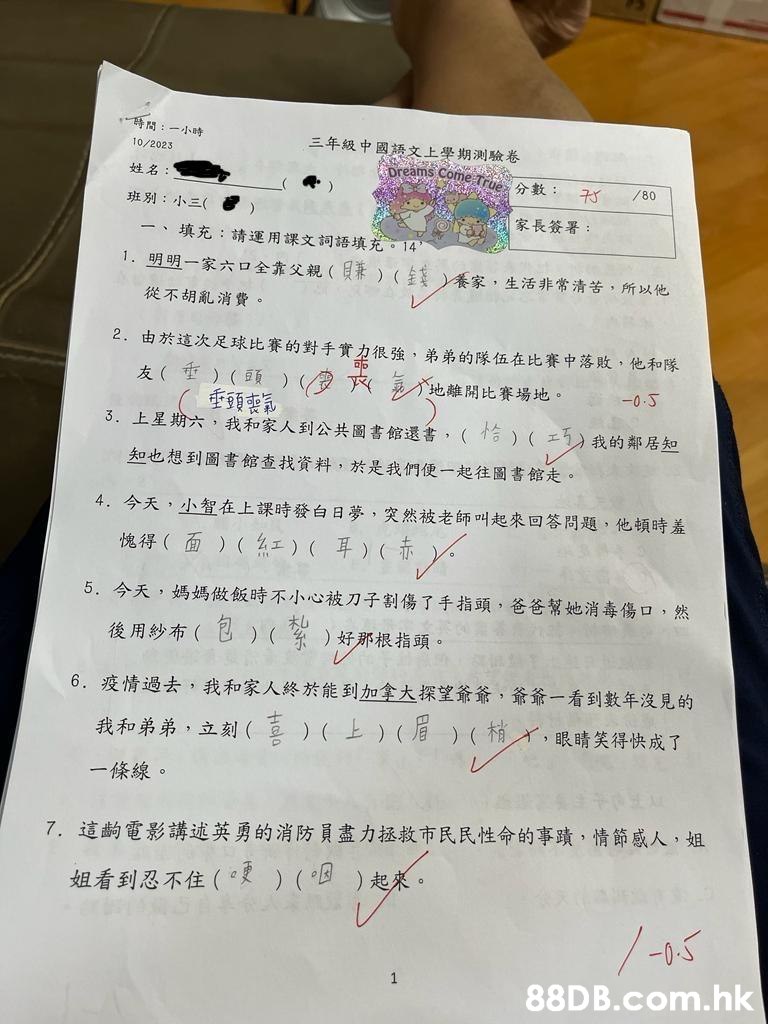 時間：一小時
10/2023
三年級中國語文上學期測驗卷
姓名：
( )
Dreams Come True
分數： 75 /80
班別：小三( )
家長簽署：
一、填充：請運用課文詞語填充。14'
1. 明明一家六口全靠父親( 賺 )( 錢 )養家，生活非常清苦，所以他
從不胡亂消費。
2. 由於這次足球比賽的對手實力很強，弟弟的隊伍在比賽中落敗，他和隊
友( 垂 )( 頭 )( 喪 )( 氣 )地離開比賽場地。 -0.5
( 垂頭喪氣 )
3. 上星期六，我和家人到公共圖書館還書，( 恰 )( 巧 )我的鄰居知
知也想到圖書館查找資料，於是我們便一起往圖書館走。
4. 今天，小智在上課時發白日夢，突然被老師叫起來回答問題，他頓時羞
愧得( 面 )( 紅 )( 耳 )( 赤 )。
5. 今天，媽媽做飯時不小心被刀子割傷了手指頭，爸爸幫她消毒傷口，然
後用紗布( 包 )( 紮 )好那根指頭。
6. 疫情過去，我和家人終於能到加拿大探望爺爺，爺爺一看到數年沒見的
我和弟弟，立刻( 喜 )( 上 )( 眉 )( 梢 )，眼睛笑得快成了
一條線。
7. 這齣電影講述英勇的消防員盡力拯救市民民性命的事蹟，情節感人，姐
姐看到忍不住( 哽 )( 咽 )起來。
-0.5
1
88DB.com.hk